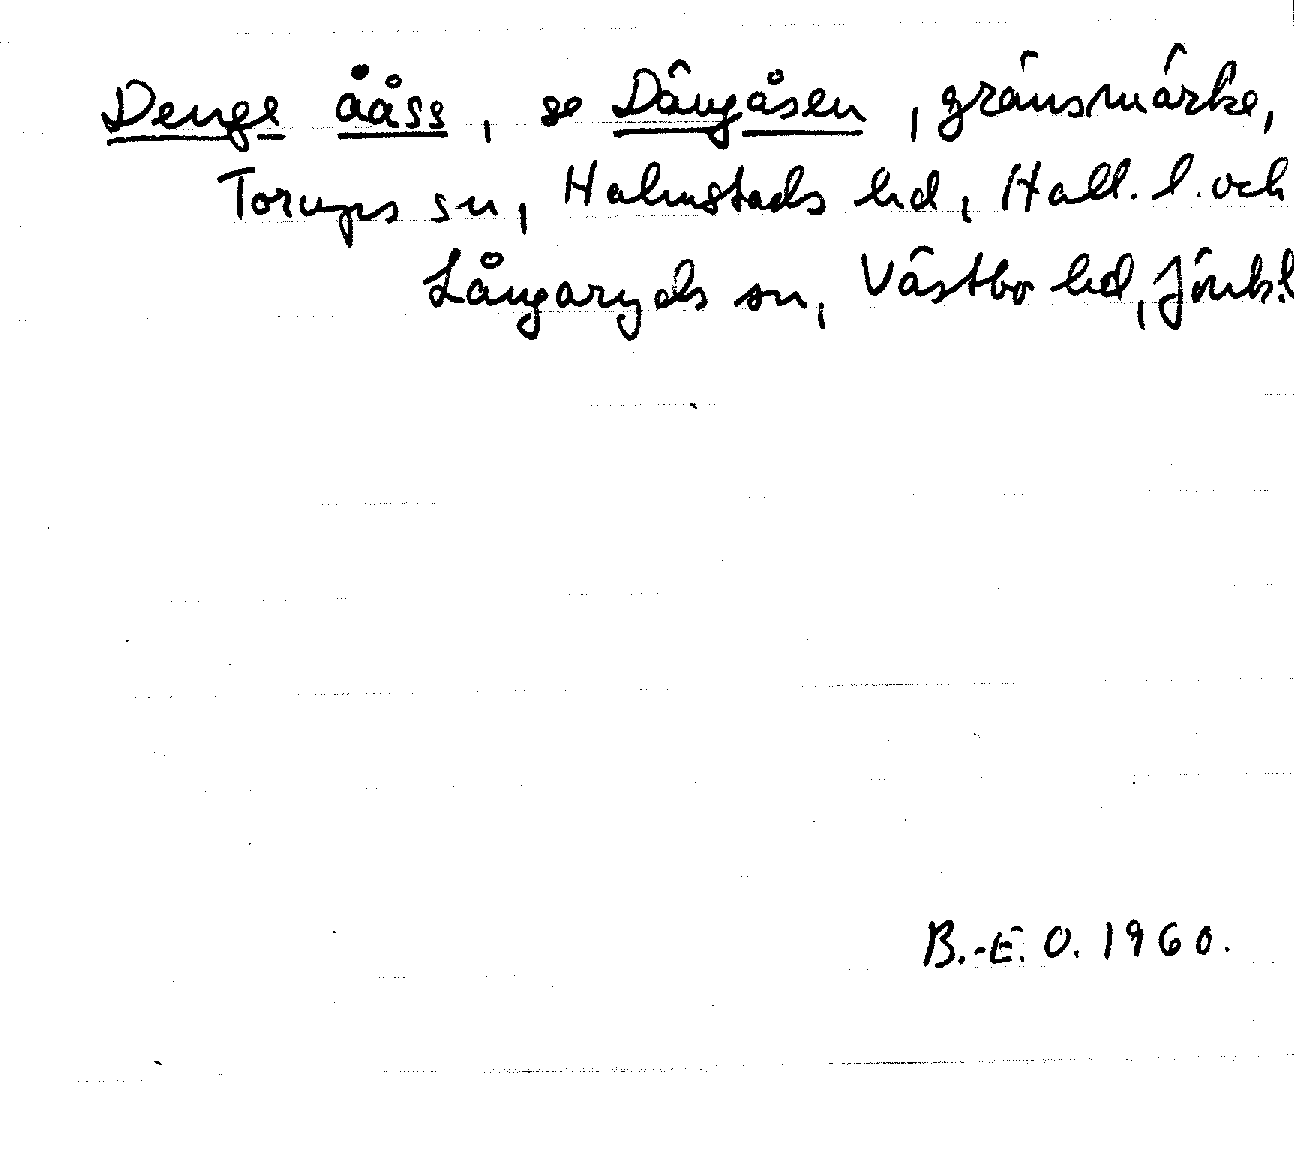 Denge ååss, se Dängåsen, gränsmärke,
Torups sn, Halmstads hd, Hall. l. och
Långaryds sn, Västbo hd, Jönk. l
B.-E. O. 1960.